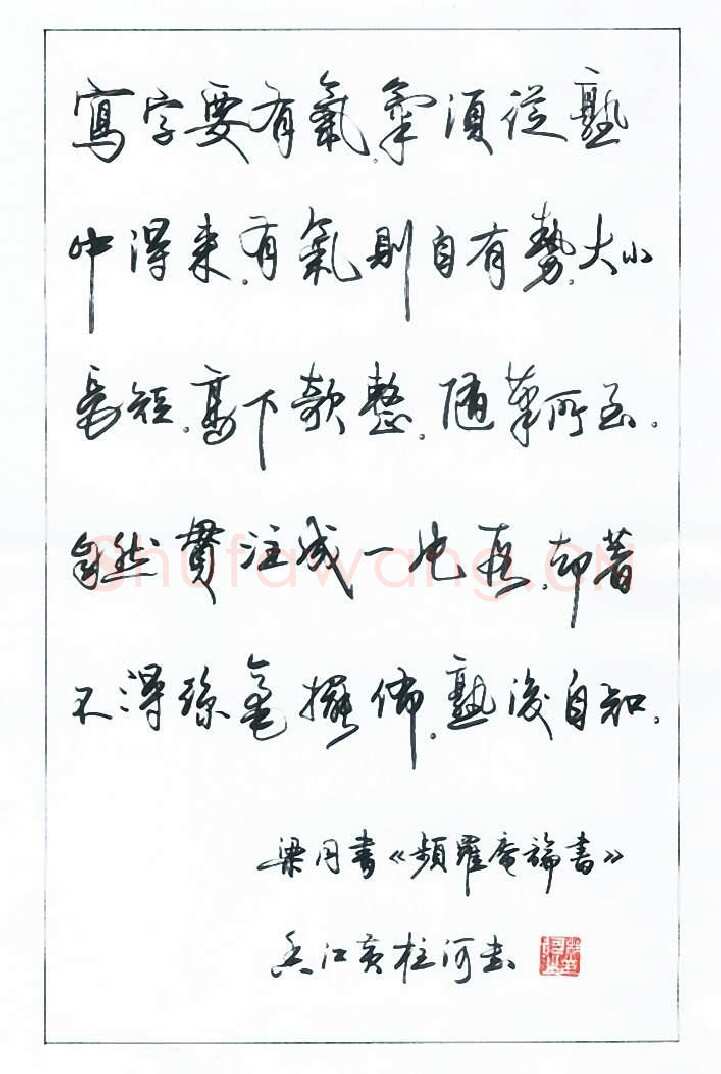 寫字要有氣,氣須從熟
中得来,有氣則自有勢,大小
長短,高下欹整,随筆所至。
自然貫注成一片段,却著
不得絲毫擺佈,熟後自知。
梁同書《頻羅庵論書》
香江黄柱河書
Shufawang.CN